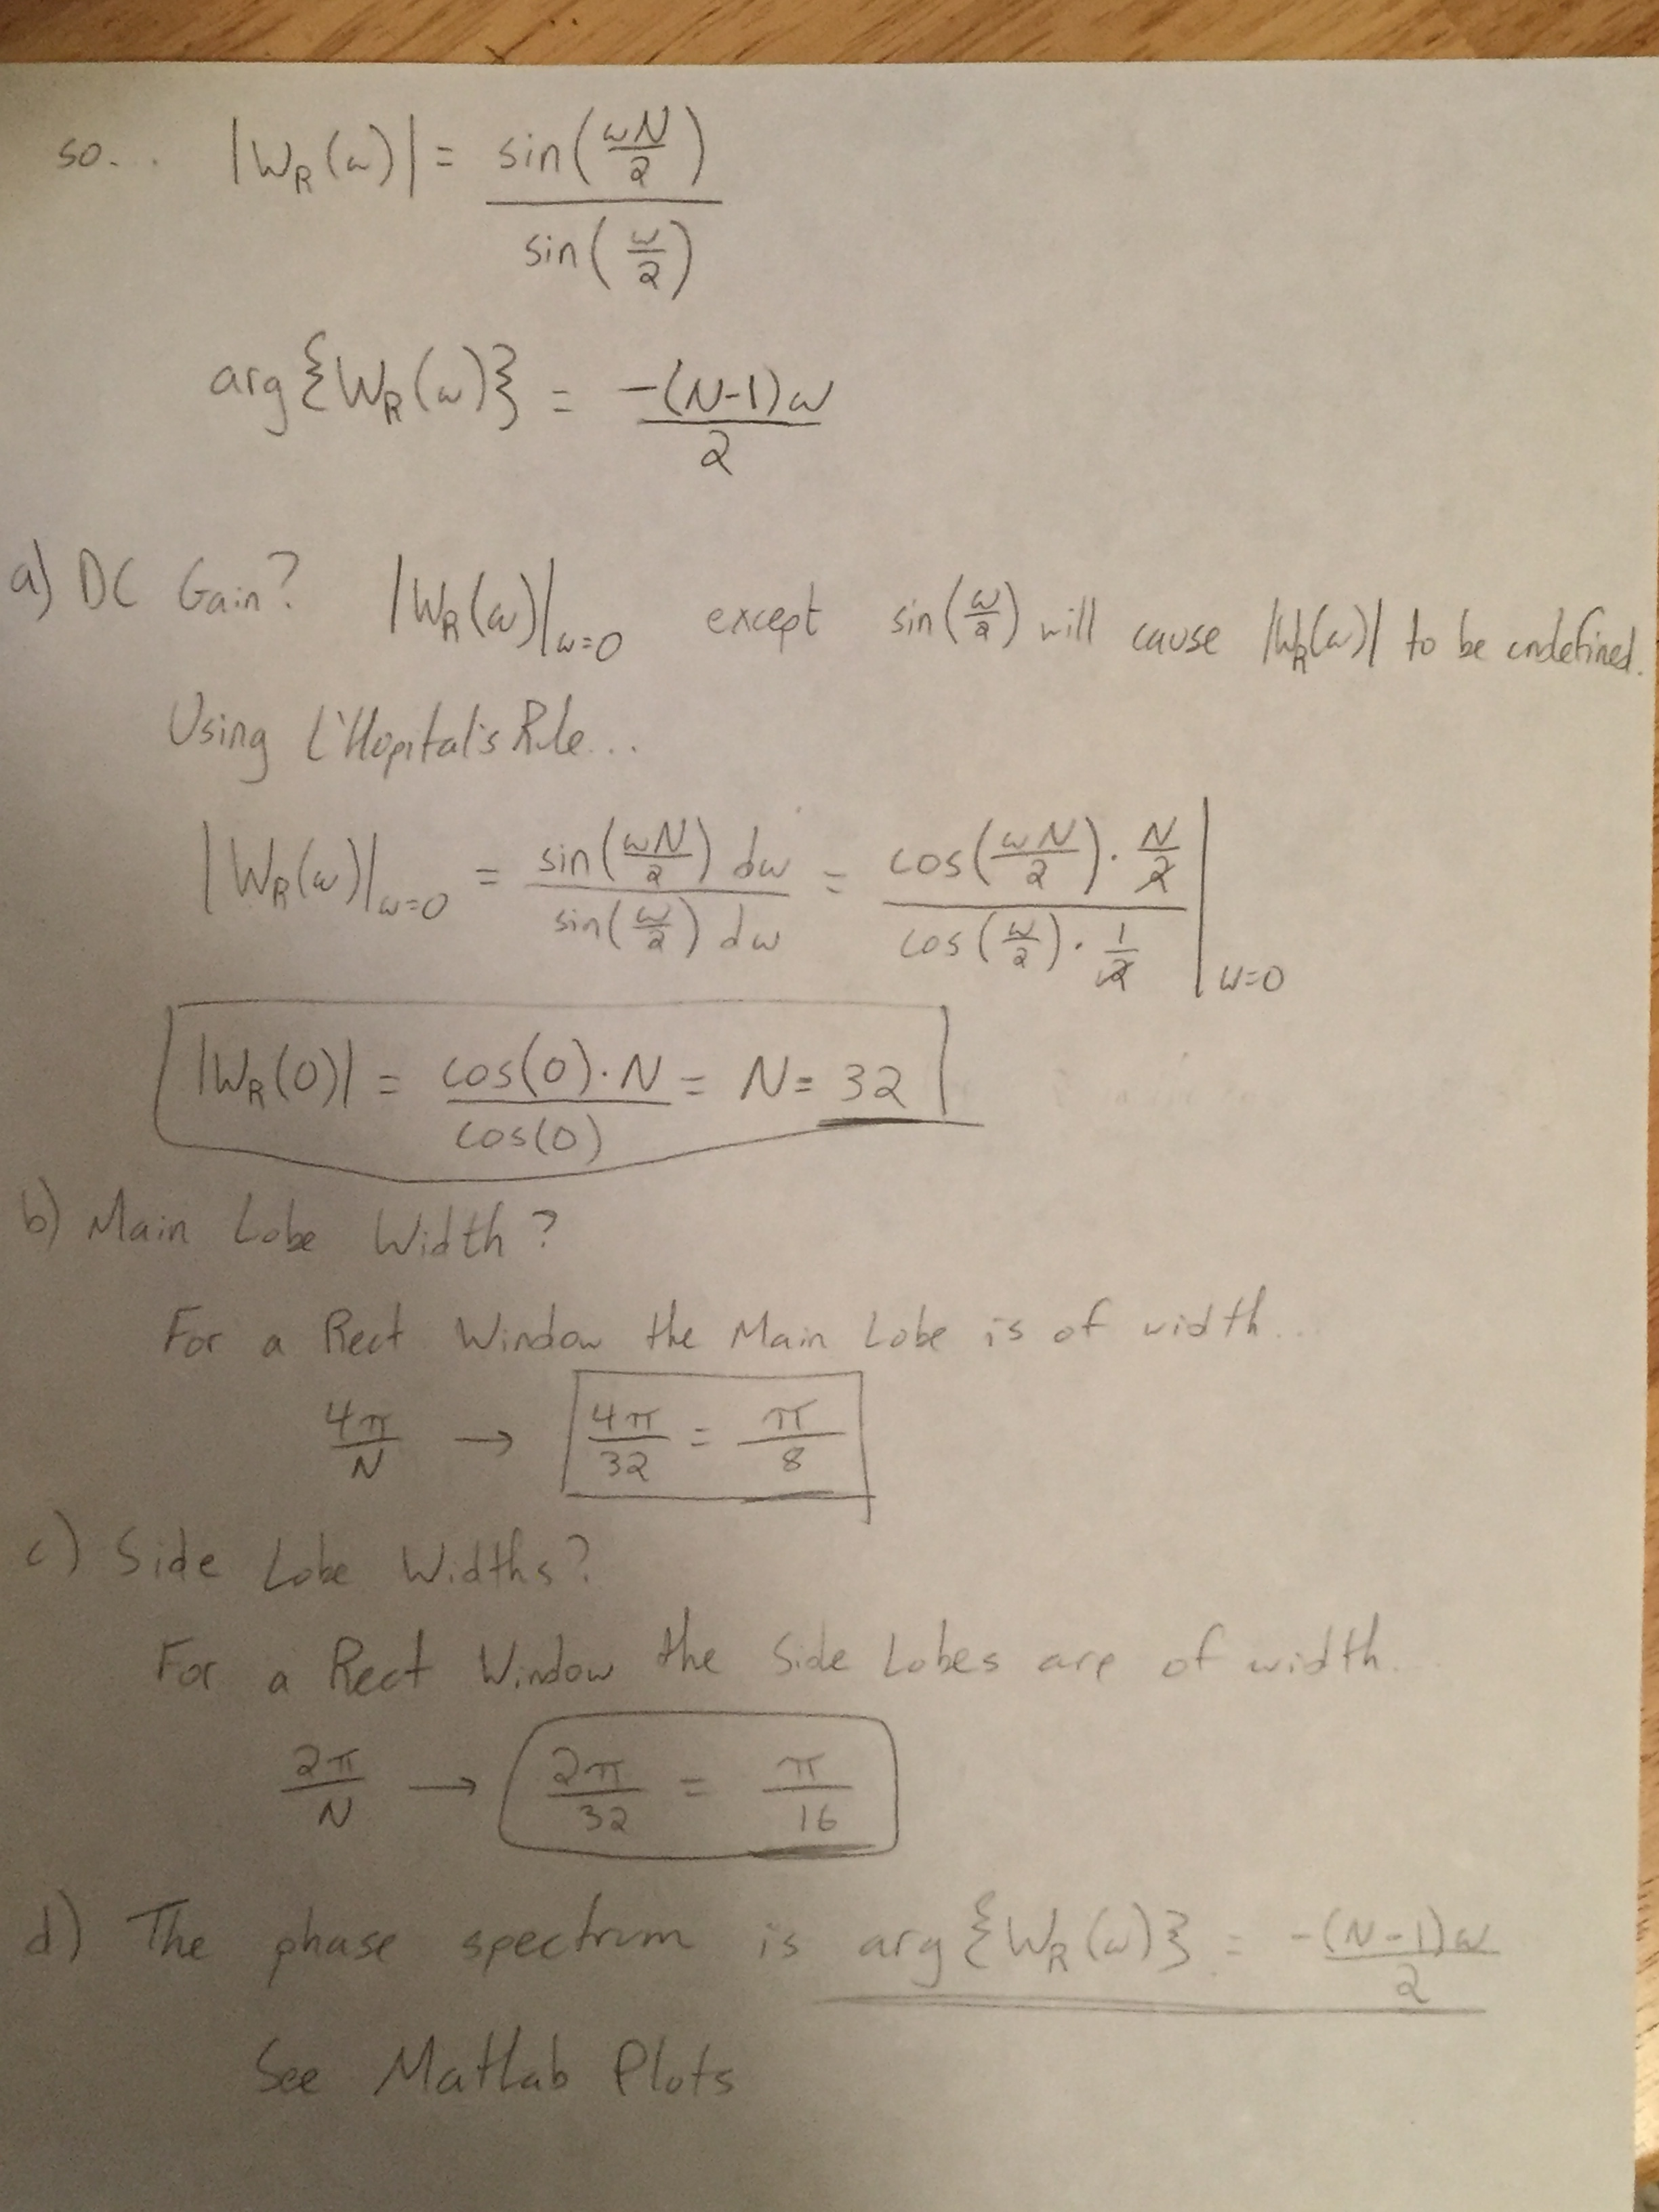 so... |W_R(ω)| = sin(ωN/2) / sin(ω/2)
arg{W_R(ω)} = -(N-1)ω/2
a) DC Gain? |W_R(ω)|_ω=0 except sin(ω/2) will cause |W_R(ω)| to be undefined.
Using L'Hopital's Rule...
|W_R(ω)|_ω=0 = sin(ωN/2) dω / sin(ω/2) dω = cos(ωN/2) · N/2 / cos(ω/2) · 1/2 |_ω=0
|W_R(0)| = cos(0)·N / cos(0) = N = 32
b) Main Lobe Width?
For a Rect Window the Main Lobe is of width...
4π/N → 4π/32 = π/8
c) Side Lobe Widths?
For a Rect Window the Side Lobes are of width...
2π/N → 2π/32 = π/16
d) The phase spectrum is arg{W_R(ω)} = -(N-1)ω/2
See Matlab Plots